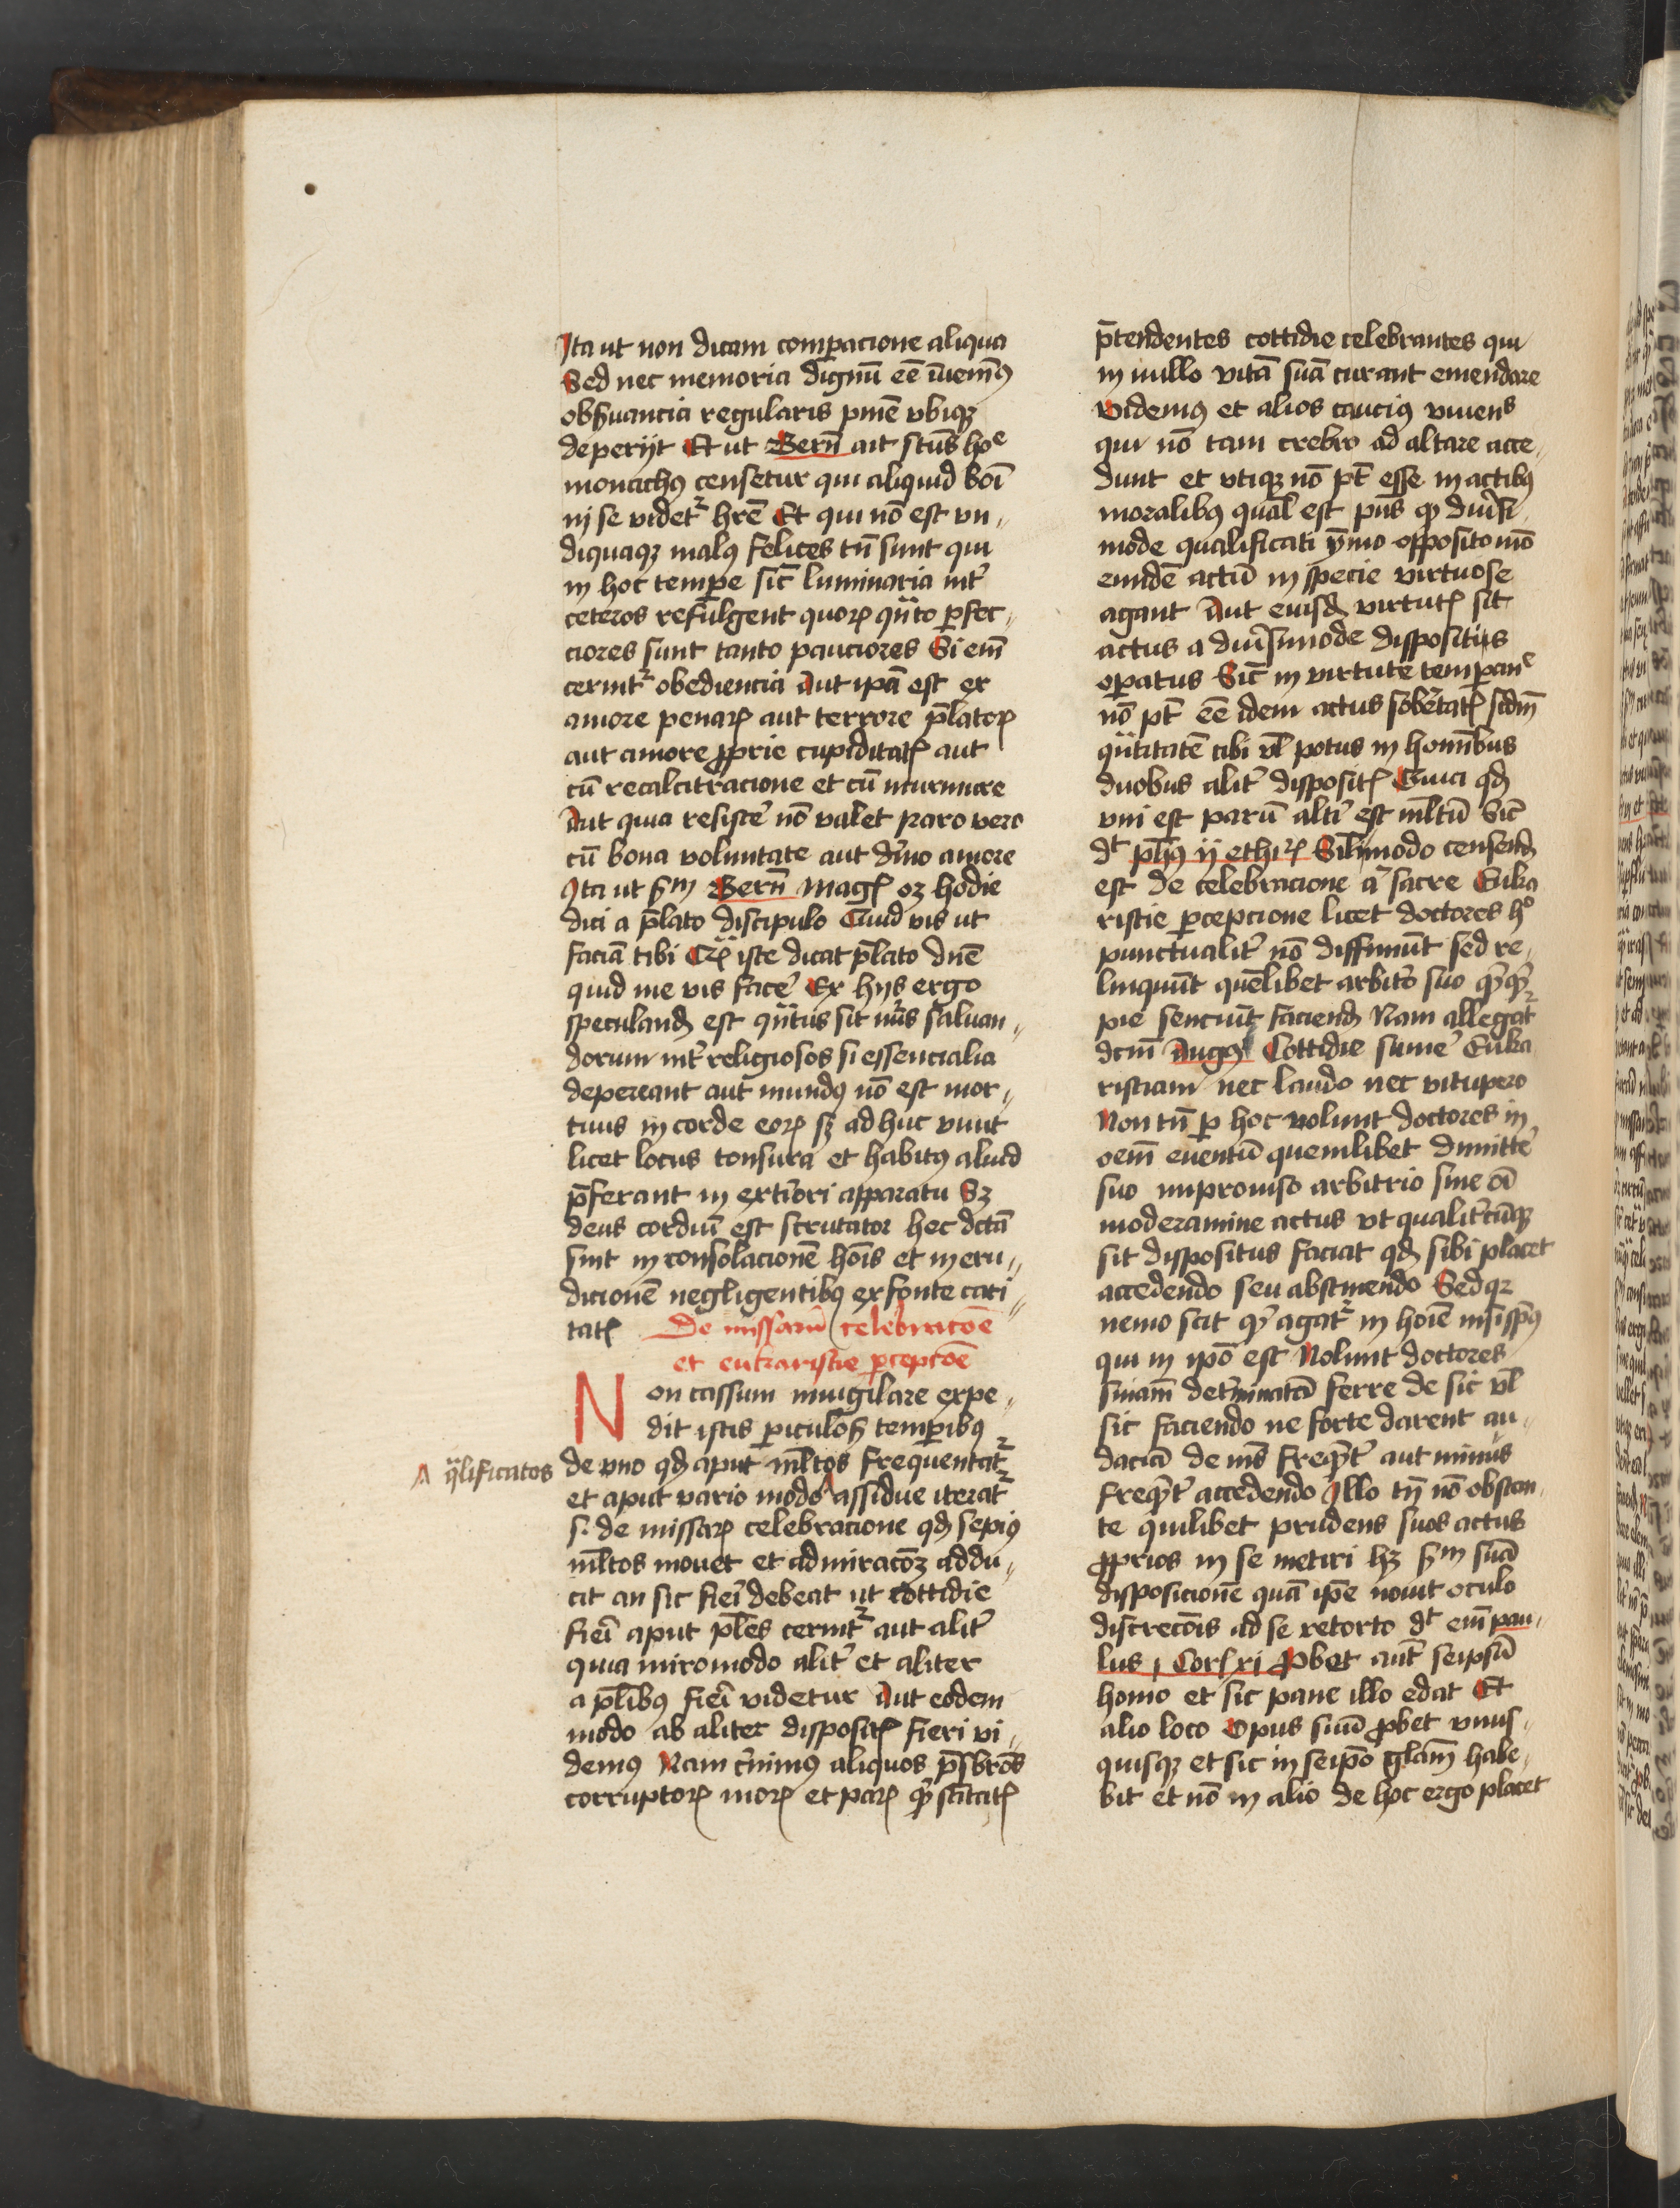 Ita ut non dicam comꝑacione aliqua
Sed nec memoria dignū eē īuenimꝰ
obẜuancia regularis pniē vbiqꝫ
deperijt Et ut Bern̄ ait sctūs hoᵉ
monachꝰ censetur qui aliquid boī
in se videtᷣ hrē Et qui nō est vn„
diquaqꝫ malꝰ felices tn̄ sunt qui
in hoc tempe sic̄ luminaria int̄
ceteros refulgent quoꝝ qn̄to ꝑfec„
ciores sunt tanto pauciores Si em̄
cernitᷣ obediencia Aut ipā est ex
amore penaꝝ aut terrore p̄latoꝝ
aut amore ꝓprie cupiditatꝭ aut
cū recalcitracione et cū murmure
Aut quia resistē nō valet raro vero
cū bona voluntate aut diuīo amore
Ita ut ẜm Bern̄ magꝭ oꝫ hodie
dici a p̄lato discipulo Quid vis ut
faciā tibi Qꝫ iste dicat p̄lato dn̄e
quid me vis facē Ex hijs ergo
speculandꝭ est qn̄tus sit nūs saluan„
dorum int̄ religiosos si essencialia
depereant aut mundꝰ nō est mor„
tuus in corde eoꝝ sꝫ ad huc viuit
licet locus tonsura et habitꝰ aliud
p̄ferant in extiori apparatu Sꝫ
deus cordiū est scrutator hec dcta
sint in consolacionē hoīs et in eru„
dicionē negligentibꝰ ex fonte cari„
tatꝭ De missarū celebracōe
et eukaristie ꝑcepcōe
Non cassum inuigilare expe„
dit istis ꝑiculosꝭ tempibꝰ
de vno qđ aput ml̄tos frequentatᷣ
A q̈lificatos
et aput vario modo ^ assidue iteratᷣ
sꝫ de missaꝝ celebracione qđ sepiꝰ
ml̄tos mouet et admiracōꝫ addu„
cit an sic fieī debeat ut cottidie
fieī aput pl̄es cernitᷣ aut alit̄
quia miro modo alit̄ et aliter
a pl̄ibꝰ fieī videtur Aut eodem
modo ab aliter dispositꝭ fieri vi„
demꝰ Nam c̄nimꝰ aliquos p̄sbros
corruptoꝝ moꝝ et paꝝ scītatꝭ
p̄tendentes cottidie celebrantes qui
in nullo vitā suā curant emendare
videmꝰ et alios cauciꝰ viuenˢ
qui nō tam crebro ad altare acce„
dunt et vtiqꝫ nō pt̄ esse in actibꝰ
moralibꝰ qual̄ est pn̄s qꝫ diuisi„
mode qualificati ymo opposito mō
eundē actū in specie virtuose
agant Aut eiusdꝭ virtutꝭ sit
actus a diuisimode dispositus
oꝑatus Sic̄ in virtute tempanᵉ
nō pt̄ eē idem actus sobetatꝭ scdm̄
qn̄titatē cibi vl̄ potus in hominibus
duobus alit̄ dispositꝭ Quia qđ
vni est parū alti est ml̄tū Sic̄
dt̄ ph̄us ij ethicꝝ Silimodo censendꝭ
est de celebracione ac̄ sacre Euka
ristie ꝑcepcione licet doctores hͦ
punctualit̄ nō diffiniūt sed re„
linquūt quēlibet arbitō suo
pie senciūt faciendꝭ Nam allegatᷣ
dcm̄ Augꝰ Cottidie sumē Euka
ristiam nec laudo nec vitupero
Non tn̄ ꝑ hoc volunt doctores in
oem̄ euentū quemlibet dimittē
suo improuiso arbitrio sine oī
moderamine actus vt qualitcūqꝫ
sit dispositus faciat qđ sibi placet
accedendo seu abstinendo Sed qꝛ
nemo scit qͥ agatᷣ in hoīe nisi sp̄us
qui in ipō est Nolunt doctores
sniam̄ detminatā ferre de sic vl̄
sic faciendo ne forte darent au„
daciā de nīs freqn̄t̄ aut minus
freqn̄t̄ accedendo Illo tn̄ nō obstan„
te quilibet prudens suos actus
ꝓprios in se metiri hꝫ ẜm suā
disposicionē quā ipē nouit oculo
discrecōis ad se retorto dt̄ em̄ pau„
lus j Cor xi Ꝓbet aut̄ seipsū
homo et sic pane illo edat Et
alio loco Opus suū ꝓbet vnus„
quisqꝫ et sic in seipō glām habe„
bit et nō in alio de hoc ergo placet